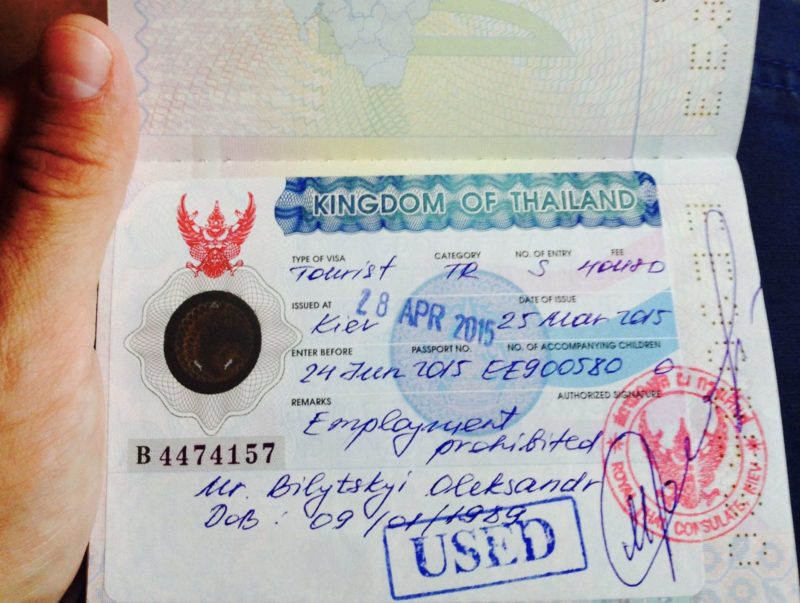 KINGDOM OF THAILAND
TYPE OF VISA CATEGORY NO. OF ENTRY FEE
Tourist TR S
ISSUED AT DATE OF ISSUE
Kiev 28 APR 2015 25 Mar 2015
ENTER BEFORE PASSPORT NO. NO. OF ACCOMPANYING CHILDREN
24 Jun 2015 EE900580 0
REMARKS AUTHORIZED SIGNATURE
Employment
prohibited
B 4474157
Mr. Bilytskyi Oleksandr
DoB : 09/01/1989
USED
ROYAL THAI CONSULATE, KIEV